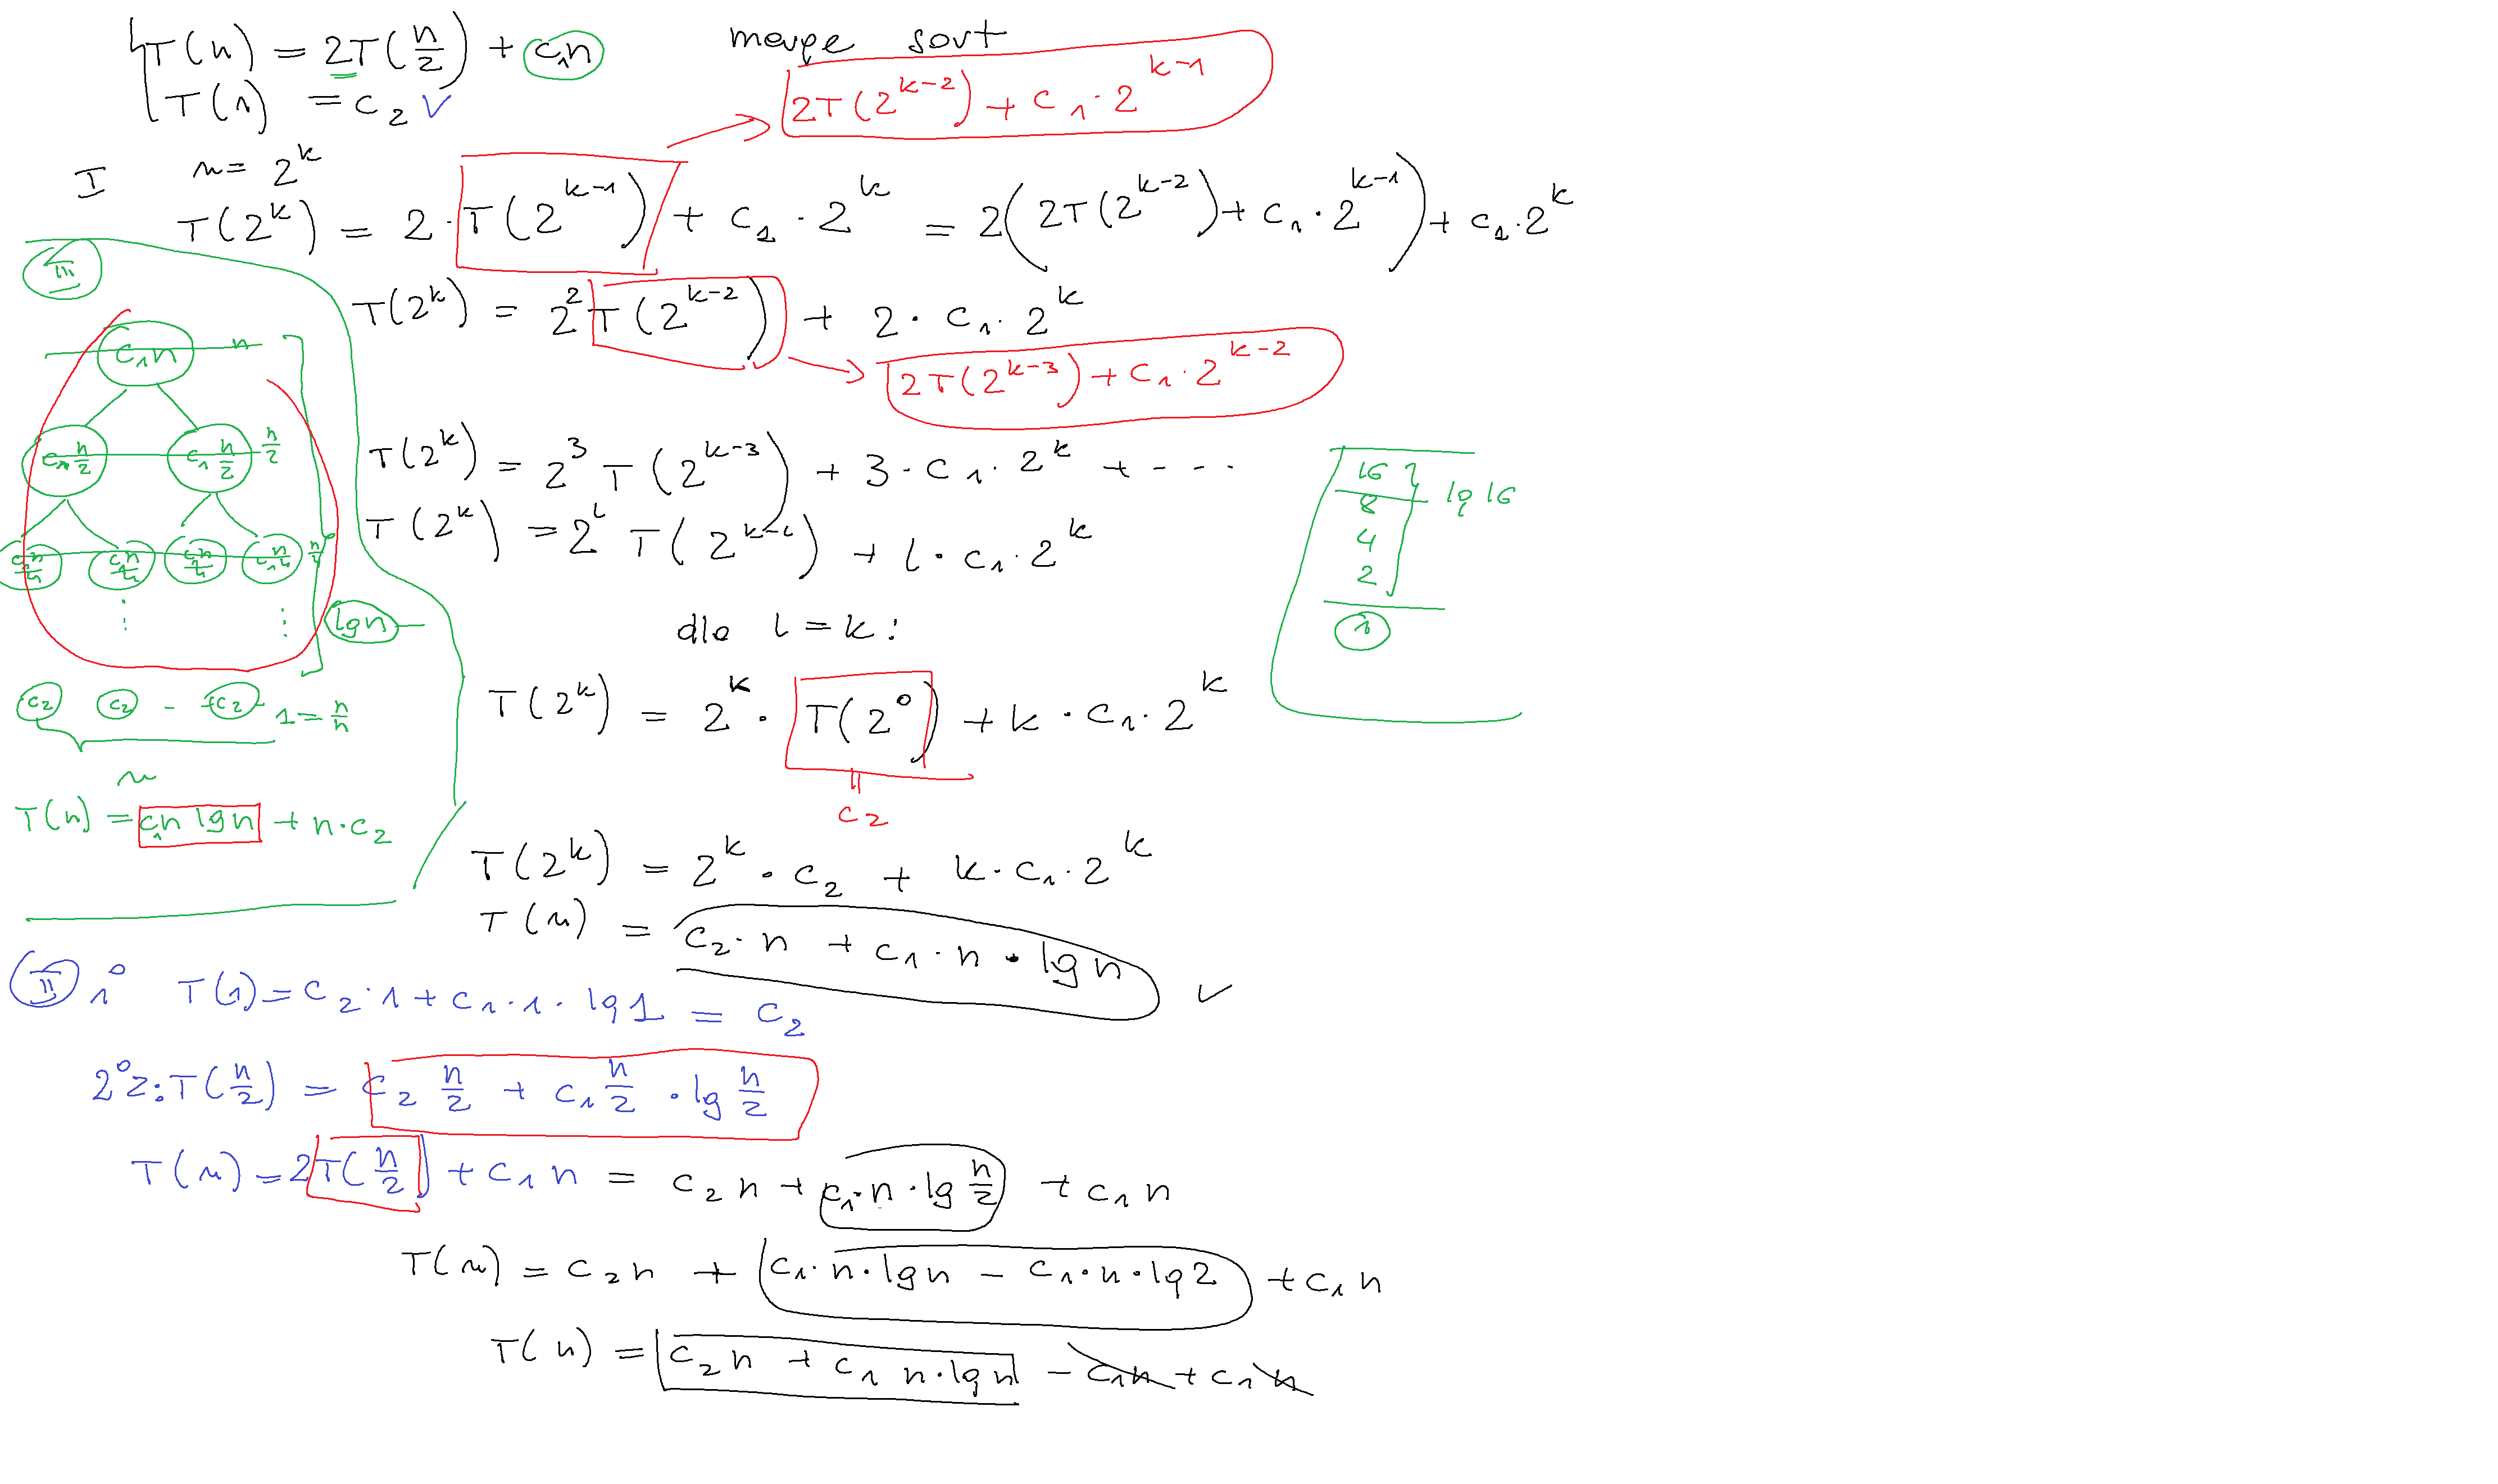 T(n) = 2T(n/2) + c₁n merge sort
T(1) = c₂ ✓
2T(2^(k-2)) + c₁·2^(k-1)
I n = 2^k
T(2^k) = 2·T(2^(k-1)) + c₁·2^k = 2(2T(2^(k-2)) + c₁·2^(k-1)) + c₁·2^k
T(2^k) = 2² T(2^(k-2)) + 2·c₁·2^k
2T(2^(k-3)) + c₁·2^(k-2)
T(2^k) = 2³ T(2^(k-3)) + 3·c₁·2^k + - - -
T(2^k) = 2^l T(2^(k-l)) + l·c₁·2^k
dla l = k:
T(2^k) = 2^k · T(2⁰) + k·c₁·2^k
= c₂
T(2^k) = 2^k · c₂ + k·c₁·2^k
T(n) = c₂·n + c₁·n·lg n ✓
III
c₁n n
c₁ n/2 c₁ n/2 n/2
c₁ n/4 c₁ n/4 c₁ n/4 c₁ n/4 n/4
⋮ ⋮ lgn
c₂ c₂ - c₂ 1 = n/n
n
T(n) = c₁n lgn + n·c₂
16
8 lg 16
4
2
1
II 1° T(1) = c₂·1 + c₁·1·lg1 = c₂
2° Z: T(n/2) = c₂ n/2 + c₁ n/2 · lg n/2
T(n) = 2T(n/2) + c₁n = c₂n + c₁·n·lg n/2 + c₁n
T(n) = c₂n + c₁·n·lgn - c₁·n·lg2 + c₁n
T(n) = c₂n + c₁ n·lgn - c₁n + c₁n